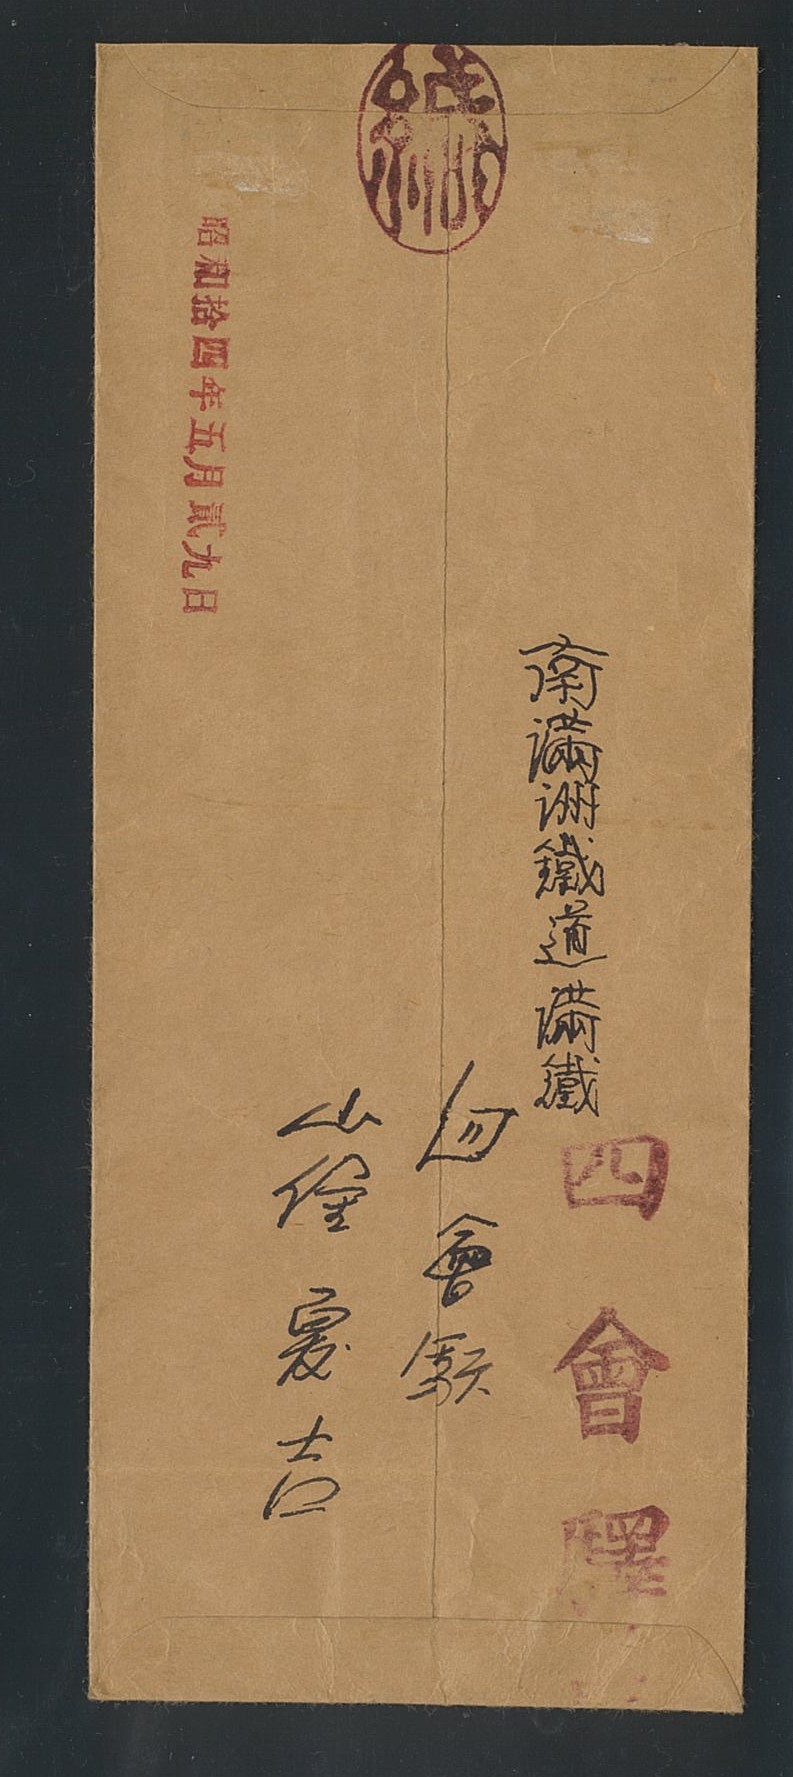 緘
南滿洲鐵道滿鐵
四會驛
四會駅
山夏吉
昭和拾四年五月貳九日